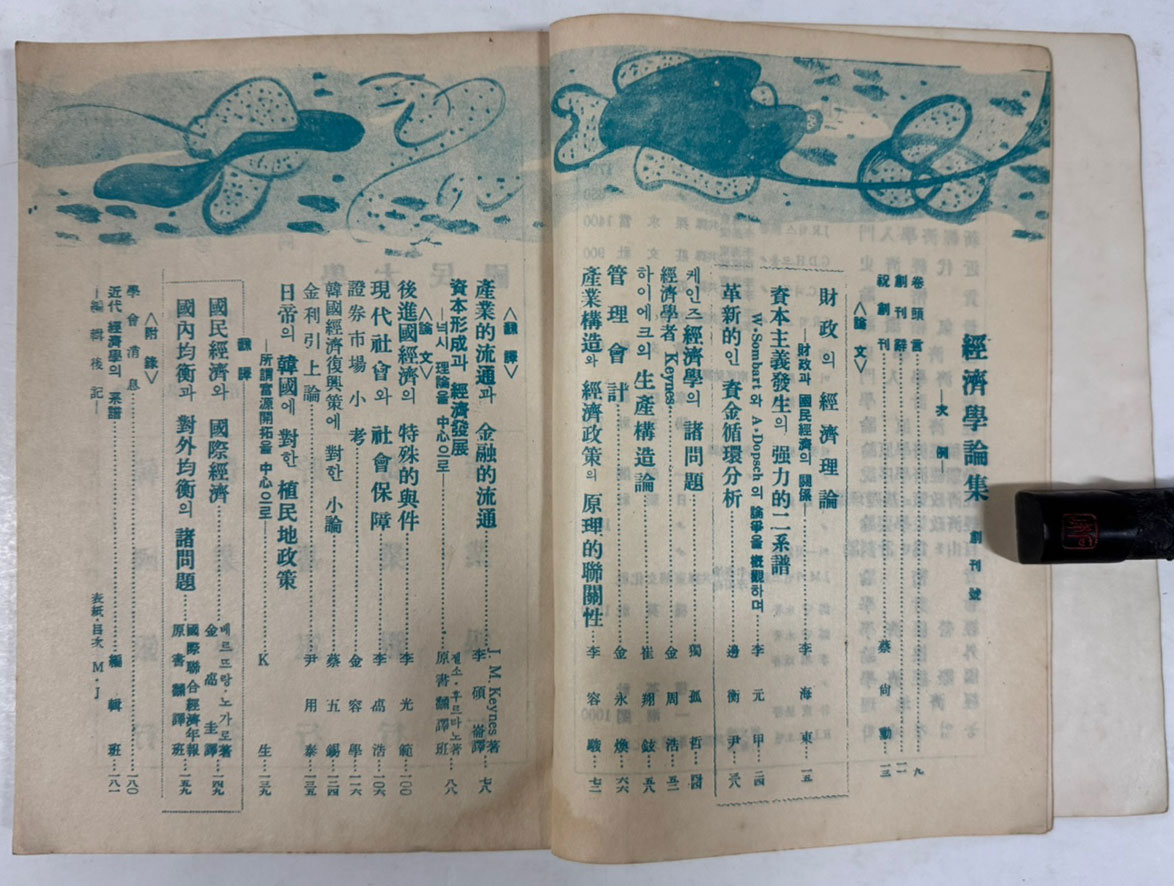 經濟學論集 創刊號
—次例—
卷頭言 九
創刊辭 一一
祝創刊 蔡尙勳 一三
〈論文〉
財政의 經濟理論 李海東 一五
—財政과 國民經濟의 關係
資本主義發生의 强力的 二系譜 李元甲 二四
W·Sombart와 A·Dopsch의 論爭을 槪觀하며
革新的인 資金循環分析 邊衡尹 三八
케인즈 經濟學의 諸問題 獨孤哲 四四
經濟學者 Keynes 金周浩 五二
하이에크의 生產構造論 崔翔鉉 五八
管理會計 金永煥 六六
產業構造와 經濟政策의 原理的聯關性 李容駿 七二
〈飜譯〉
產業的流通과 金融的流通 J. M. Keynes著
李碩崙譯 七八
資本形成과 經濟發展 쩰소·후르따노著
—넉시 理論을 中心으로— 原書飜譯班 八八
〈論文〉
後進國經濟의 特殊的與件 李光範 一〇〇
現代社會와 社會保障 李卨浩 一〇六
證券市場小考 金容學 一一六
韓國經濟復興策에 對한 小論 蔡五錫 一二四
金利引上論 尹用泰 一三五
日帝의 韓國에 對한 植民地政策 K生 一三九
—所謂富源開拓을 中心으로—
飜譯
國民經濟와 國際經濟 베르뜨랑·노가로著
金卨圭譯 一四九
國內均衡과 對外均衡의 諸問題 國際聯合經濟年報
原書飜譯班 一五九
〈附錄〉
學會消息 一八〇
近代 經濟學의 系譜 編輯班 一八一
—編輯後記—
表紙·目次 M·J